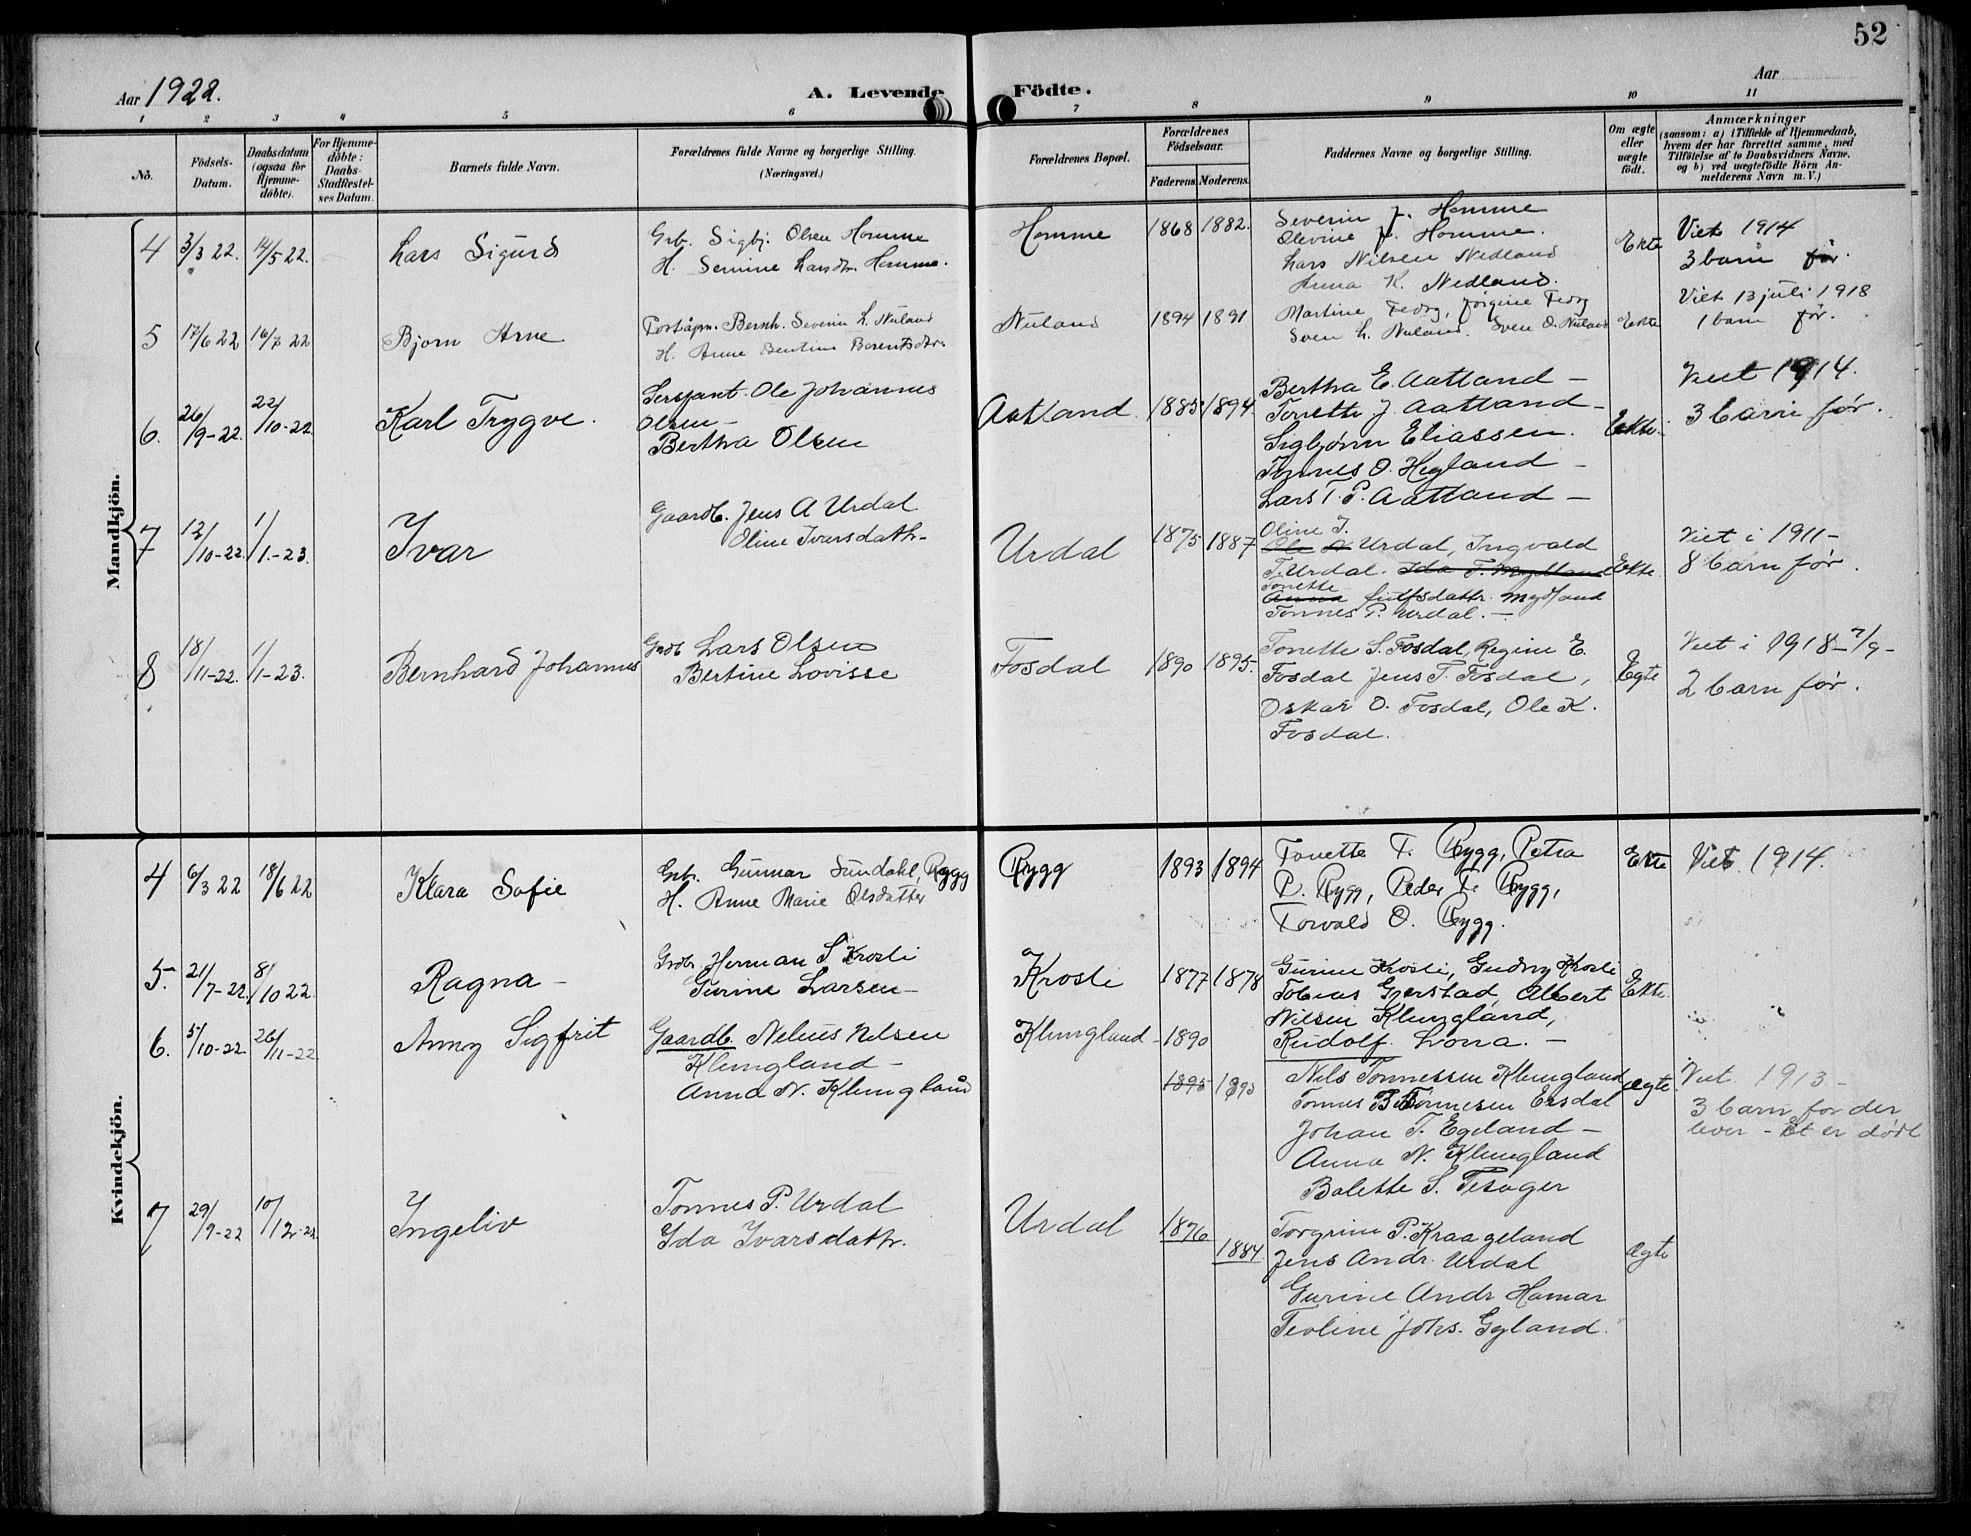 52
Aar 1922.
A. Levende Födte.
Aar
1 2 3 4 5 6 7 8 9 10 11
No.
Födsels-Datum.
Daabsdatum (ogsaa for Hjemme-döbte).
For Hjemme-döbte: Daabs-Stadfæstel-ses Datum.
Barnets fulde Navn.
Forældrenes fulde Navne og borgerlige Stilling.
(Næringsvei.)
Forældrenes Bopæl.
Forældrenes Födselsaar.
Faderens. Moderens.
Faddernes Navne og borgerlige Stilling.
Om ægte eller uægte födt.
Anmærkninger
(saasom: a) i Tilfælde af Hjemmedaab,
hvem der har forrettet samme, med
Tilföielse af to Daabsvidners Navne,
og b) ved uægtefödte Börn An-
melderens Navn m. V.)
Mandkjön.
4 3/3 22. 14/5 22. Lars Sigurd
Grb. Sigbj. Olsen Homme
H. Semine Larsdtr. Homme.
Homme 1868 1882.
Severin J. Homme
Olevine J. Homme.
Lars Nilsen Nedland
Anna K. Nedland.
Ekte
Viet 1914
3 barn før.
5 17/6 22 16/7 22 Bjorn Arne
Poståpn. Bernh. Severin L. Nuland
H. Anne Bentine Berentsdtr.
Nuland 1894 1891
Martine Fedog, Jörgine Fedog
Sven L. Nuland. Sven O. Nuland
Ekte
Viet 13 juli 1918
1 barn før.
6. 26/9-22. 22/10-22. Karl Trygve.
Sersjant. Ole Johannes
Olsen-
Bertha Olsen
Aatland. 1885 1894.
Bertha E. Aatland -
Tonette J. Aatland -
Sigbjørn Eliassen.
Tønnes O. Hegland -
Lars T. P. Aatland -
Ekte.
Viet 1914.
3 barn før.
7 12/10-22. 1/1-23. Ivar
Gaardb. Jens A Urdal
Oline Ivarsdattr-
Urdal 1875 1887
Oline J.
Ole A Urdal, Ingvald
T. Urdal. Ida T. Mydland
Tonette
Anna Gulfsdattr. Mydland
Tonnes P. Urdal. -
Ekte.
Viet i 1911-
8 barn før.
8 18/11-22. 1/1-23. Bernhard Johannes
Grdb Lars Olsen
Bertine Lovisse
Fosdal 1890 1895.
Tonette S. Fosdal, Regine E.
Fosdal Jens T. Fosdal,
Oskar O. Fosdal, Ole K.
Fosdal.
Egte
Viet i 1918-7/9-
2 barn før.
Kvindekjön.
4 6/3 22 18/6 22 Klara Sofie
Grb. Gunnar Sundahl, Rygg
H. Anne Marie Olsdatter
Rygg 1893 1894
Tonette T. Rygg, Petra
P. Rygg, Peder T. Rygg,
Torvald O. Rygg.
Ekte
Viet. 1914.
5. 21/7-22. 8/10 22. Ragna -
Grdb. Herman S Krosli
Gurine Larsen-
Krosli 1877 1878
Gurine Krosli, Gudny Krosli
Tobias Gjerstad, Albert
Nilsen Klungland,
Rudolf Lona. -
Ekte.
6. 5/10-22 26/11-22 Anny Sigfrit
Gaardb. Nelius Nilsen
Klungland -
Anna N. Klungland
Klungland - 1890
1895 1895
Nils Tonnessen Klungland
Tonnes B. Tonnesen Ersdal
Johan T. Egeland -
Anna N. Klungland
Bolette S. Tesåger
Ægte.
Viet. 1913 -
3 barn for der
lever - Et er dødt
7 29/9-22 10/12-22. Ingeliv
Tonnes P. Urdal
Ida Ivarsdattr.
Urdal 1876
1884.
Torgrim P. Kraageland
Jens Andr. Urdal
Gurine Andr Hamar
Teoline Johs. Gyland.
Ægte